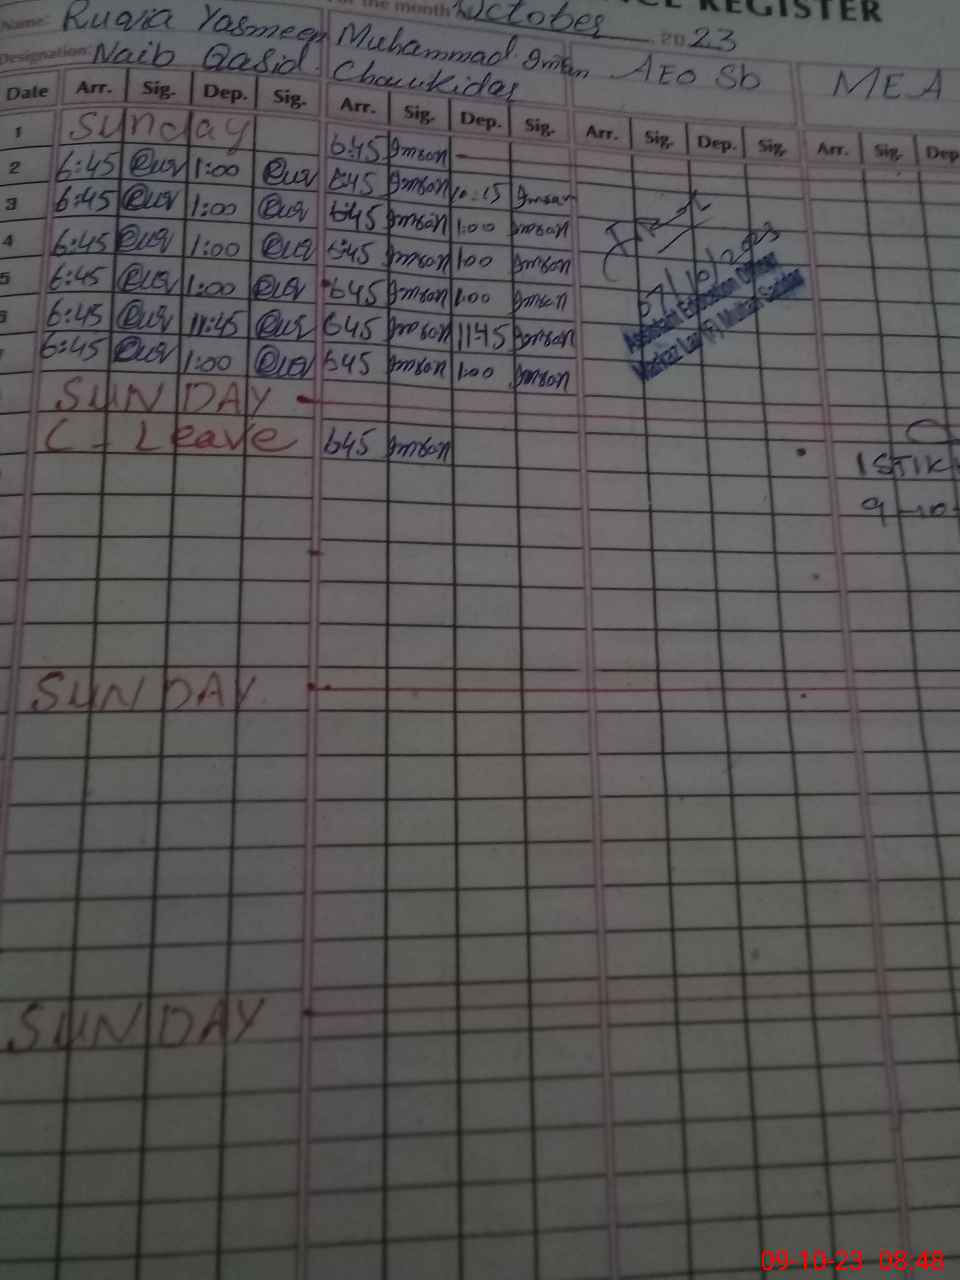 REGISTER
For the month October 2023
Name: Ruqia Yasmeen Muhammad Imran AEO Sb MEA
Designation: Naib Qasid Choukidar
Date Arr. Sig. Dep. Sig. Arr. Sig. Dep. Sig. Arr. Sig. Dep. Sig. Arr. Sig. Dep
1 Sunday 6:45 Imran
2 6:45 1:00 6:45 Imran 10:15 Imran
3 6:45 1:00 6:45 Imran 1:00 Imran
4 6:45 1:00 6:45 Imran 1:00 Imran
5 6:45 1:00 6:45 Imran 1:00 Imran
6 6:45 11:45 6:45 Imran 11:45 Imran
6:45 1:00 6:45 Imran 1:00 Imran
07/10/2023
Assistant Education Officer
Markaz Lar (F) Multan Saddar
SUNDAY
C-Leave 645 Imran
ISTIK
9-10-
SUNDAY
SUNDAY
09-10-23 08:48